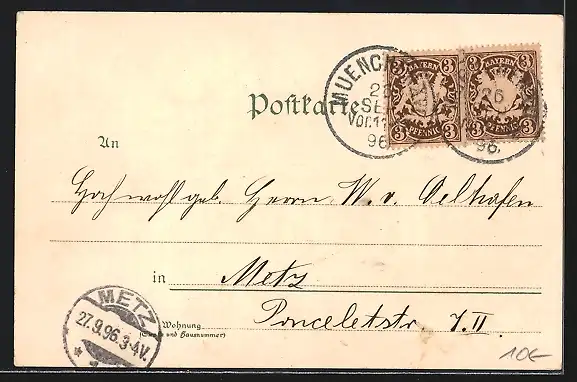 MUENCH
26
SEP
Vor. 11
96
BAYERN
3 3
PFENNIG
3 3
BAYERN
3 3
PFENNIG
3 3
26
96.
Postkarte
An
Hochwohlgeb. Herrn W. v. Oelhafen
in Metz
Wohnung Ponceletstr. 7. II
(Straße und Hausnummer)
METZ
27.9.96.3-4V.
10€